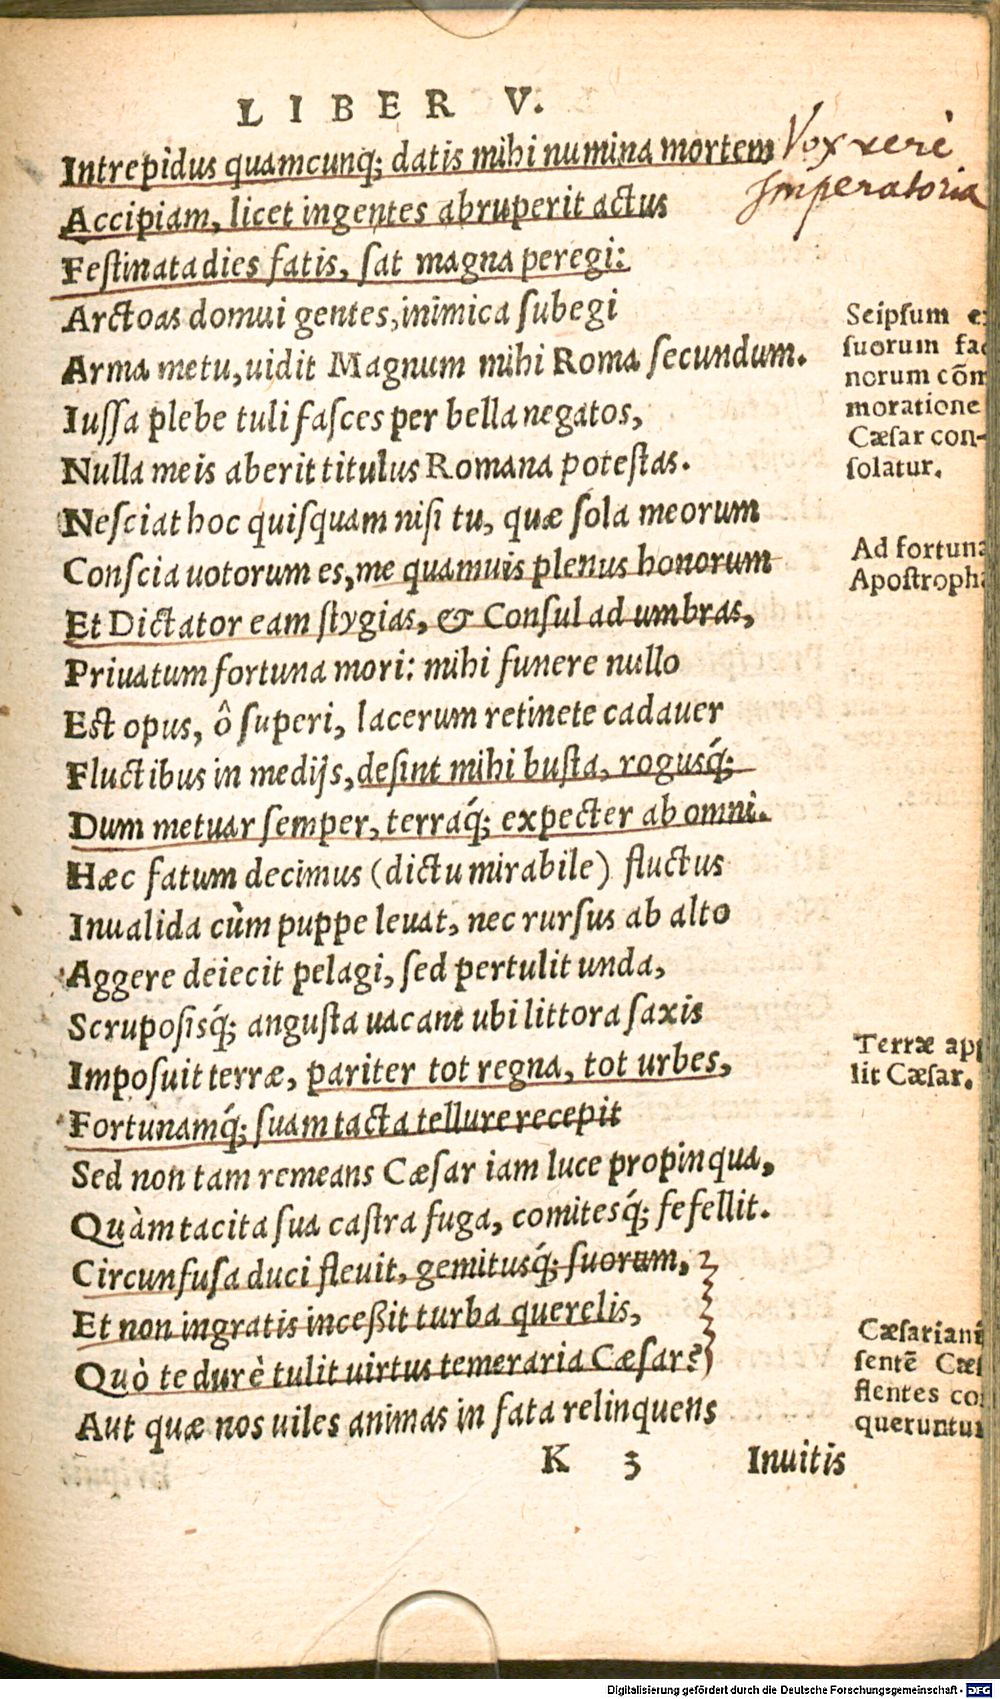 LIBER V.
Intrepidus quamcunq́; datis mihi numina mortem
Vox vere
Imperatoria
Accipiam, licet ingentes abruperit actus
Festinata dies fatis, sat magna peregi:
Arctoas domui gentes, inimica subegi
Arma metu, uidit Magnum mihi Roma secundum.
Iussa plebe tuli fasces per bella negatos,
Nulla meis aberit titulus Romana potestas.
Seipsum
suorum
norum cõm
moratione
Cæsar con-
solatur.
Nesciat hoc quisquam nisi tu, quæ sola meorum
Conscia uotorum es, me quamuis plenus honorum
Et Dictator eam stygias, & Consul ad umbras,
Ad fortuna
Apostropha
Priuatum fortuna mori: mihi funere nullo
Est opus, ô superi, lacerum retinete cadauer
Fluctibus in medijs, desint mihi busta, rogusq́;
Dum metuar semper, terraq́; expecter ab omni.
Hæc fatum decimus (dictu mirabile) fluctus
Inualida cùm puppe leuat, nec rursus ab alto
Aggere deiecit pelagi, sed pertulit unda,
Scruposisq́; angusta uacant ubi littora saxis
Imposuit terræ, pariter tot regna, tot urbes,
Terræ app
lit Cæsar.
Fortunamq́; suam tacta tellure recepit
Sed non tam remeans Cæsar iam luce propinqua,
Quàm tacita sua castra fuga, comitesq́; fefellit.
Circunfusa duci fleuit, gemitusq́; suorum,
Et non ingratis inceßit turba querelis,
Quò te durè tulit uirtus temeraria Cæsar?
Aut quæ nos uiles animas in fata relinquens
Cæsariani
sentē Cæs
flentes con
queruntur
K 3 Inuitis
Digitalisierung gefördert durch die Deutsche Forschungsgemeinschaft - DFG